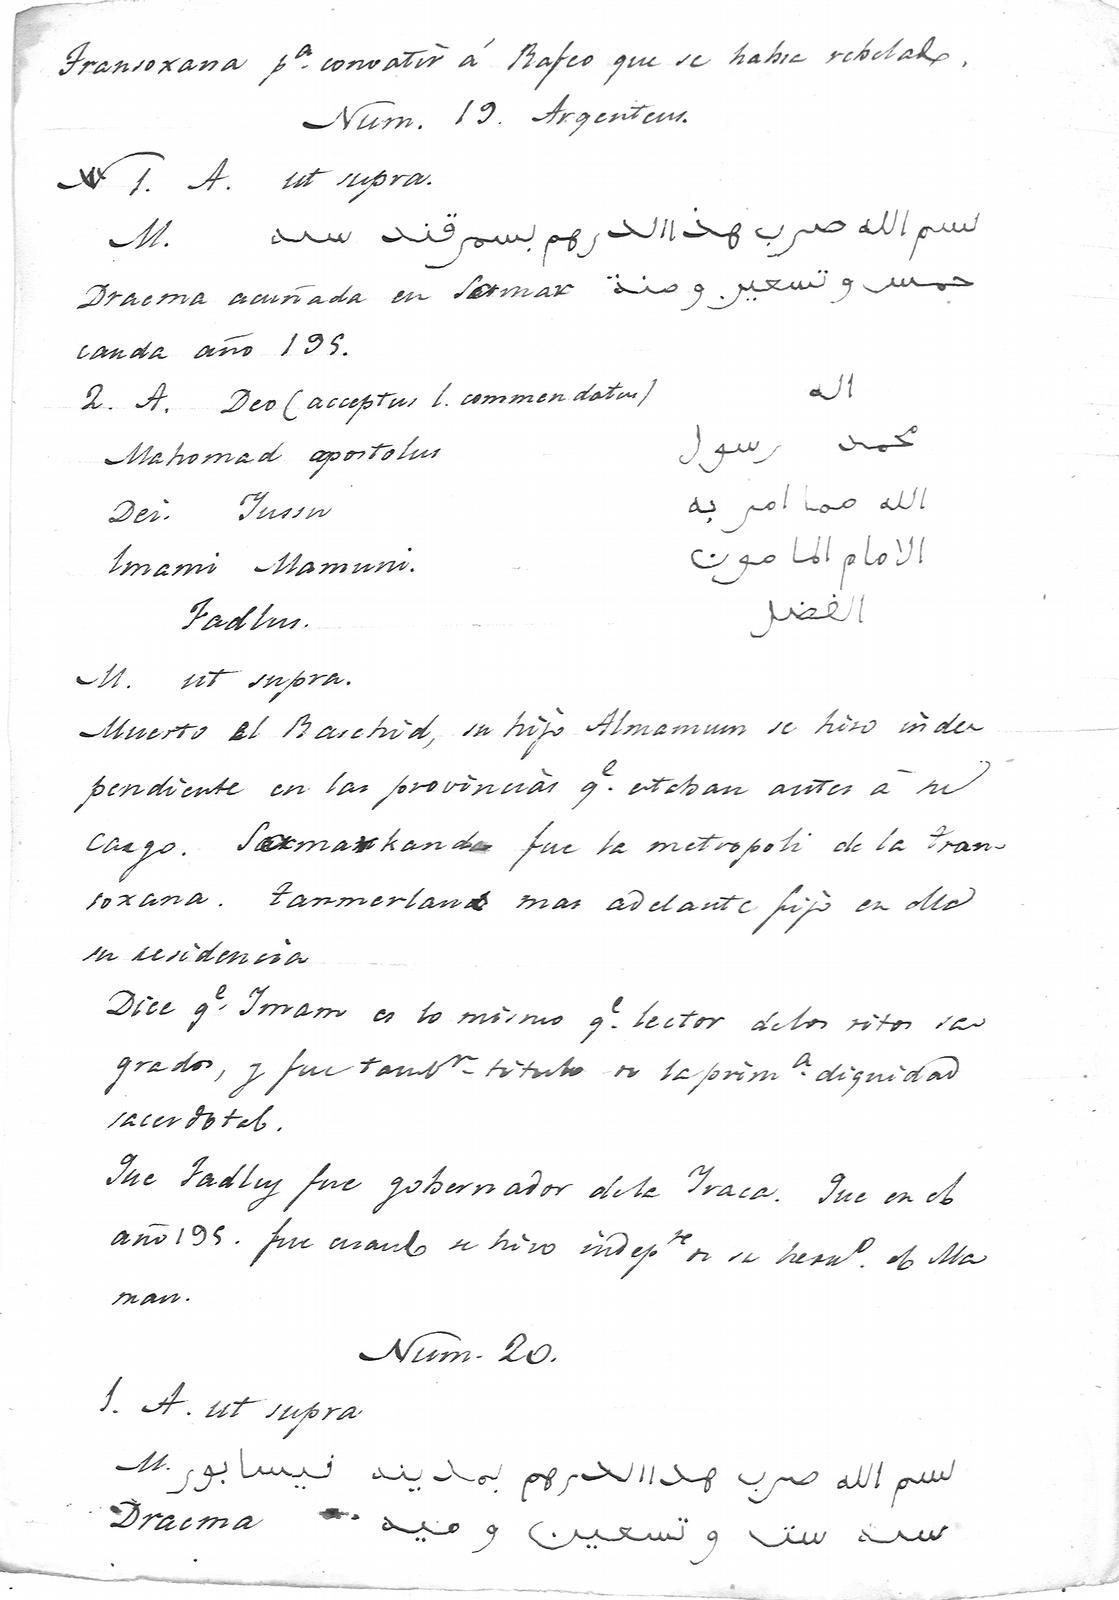 Transoxana pª convatir á Rafeo que se habia rebelado.
Num. 19. Argenteus.
N 1. A. ut supra.
M. بسم الله صرب هذا الدرهم بسمرقند سنه
Dracma acuñada en Samar خمس و تسعين و مئة
canda año 195.
2. A. Deo (acceptus l. commendatus) لله
Mahomad apostolus محمد رسول
Dei. Jussu الله مما امر به
Imami Mamuni. الامام المامون
Fadlus. الفضل
M. ut supra.
Muerto el Raschid, su hijo Almamum se hiso inde
pendiente en las provincias qᵉ estaban antes á su
cargo. Samarkanda fue la metropoli de la tran-
soxana. Tanmerland mas adelante fijó en ella
su residencia
Dice qᵉ Imam es lo mismo qᵉ lector de los ritos sa
grados, y fue tambⁿ titulo de la primª dignidad
sacerdotal.
Que Fadluy fue gobernador de la Iraca. Que en el
año 195. fue cuando se hiso indepᵗᵉ de su hermº. el Ma
man.
Num. 20.
1. A. ut supra
M. بسم الله صرب هدا الدرهم بمدينه نيسابور
Dracma سنه ست و تسعين و ميه